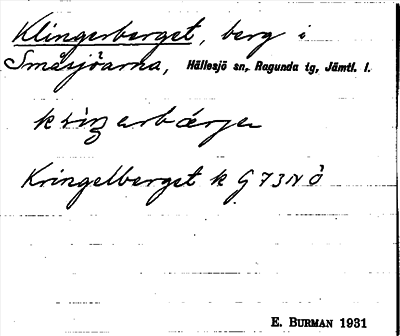 Klingerberget, berg i
Småsjöarna, Hällesjö sn, Ragunda tg, Jämtl. l.
kriŋerbærjer
Kringelberget k G 73 N Ö
E. BURMAN 1931